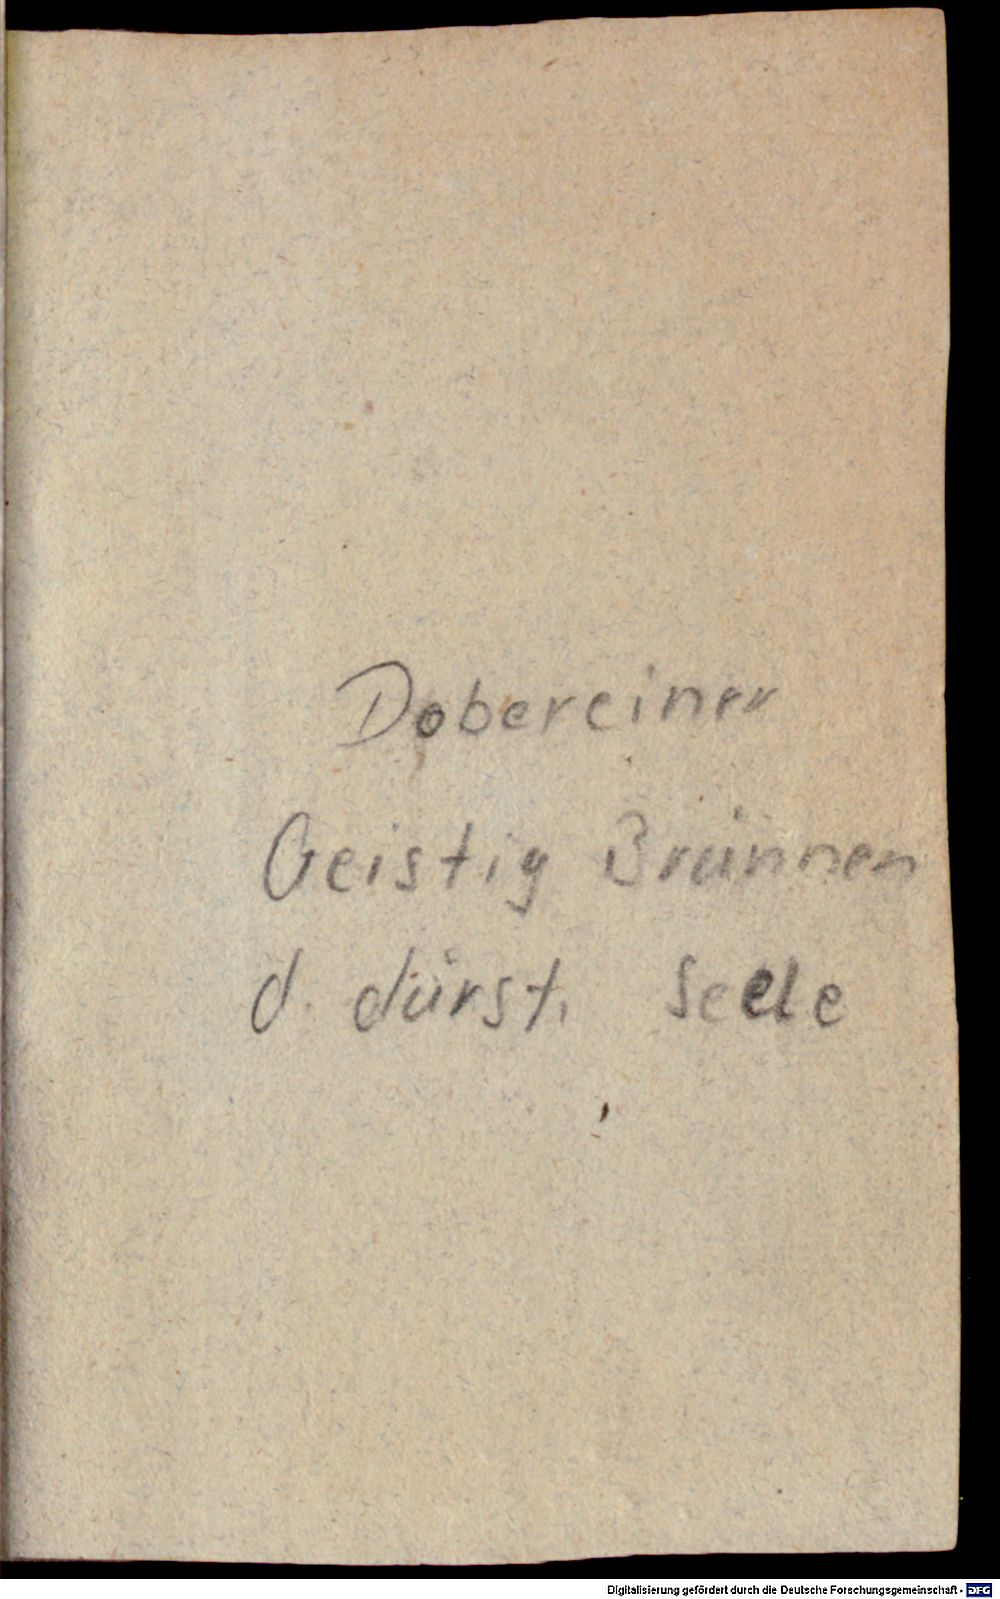 Dobereiner
Geistig Brünnen
d. dürst. Seele
Digitalisierung gefördert durch die Deutsche Forschungsgemeinschaft - DFG